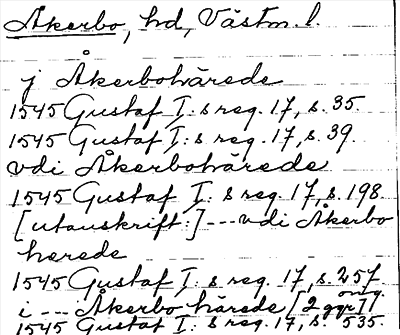 Åkerbo, hd, Västm. l.
j Åkerbohärede
1545 Gustaf I:s reg. 17, s. 35.
1545 Gustaf I:s reg. 17, s. 39
vdi Åkerbohärede
1545 Gustaf I:s reg. 17, s. 198
[utanskrift:] --- vdi Åkerbo
herede
1545 Gustaf I:s reg. 17, s. 257
i --- Åkerbo härede [2 ggr]
1545 Gustaf I:s reg. 17, s. 535.